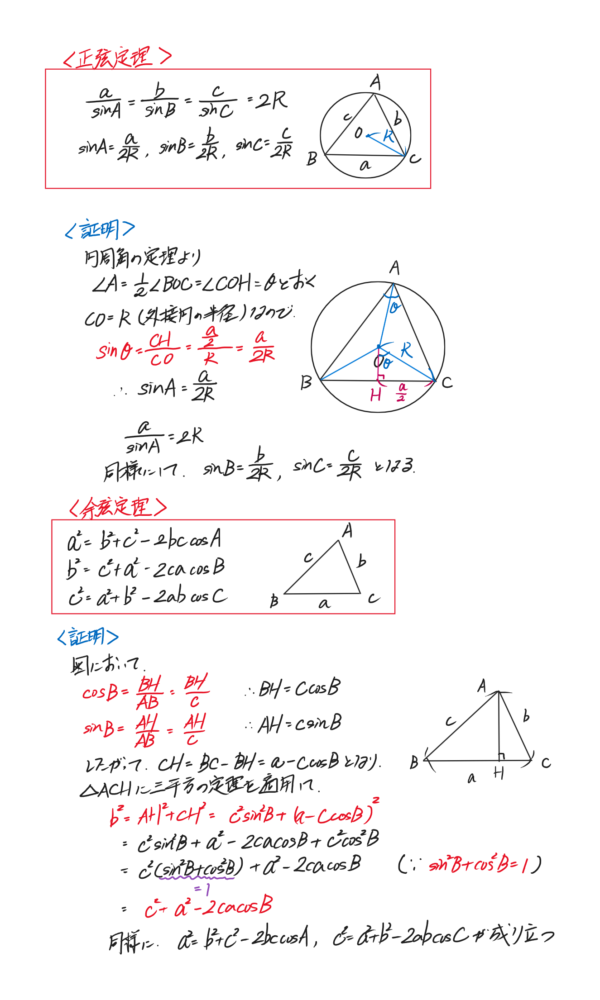 <正弦定理>
a/sinA = b/sinB = c/sinC = 2R
sinA = a/2R, sinB = b/2R, sinC = c/2R
A
c
b
O
R
B
a
C
<証明>
円周角の定理より
∠A = 1/2∠BOC = ∠COH = θ とおく
CO = R (外接円の半径) なので、
sinθ = CH/CO = (a/2)/R = a/2R
∴ sinA = a/2R
a/sinA = 2R
同様にして、sinB = b/2R, sinC = c/2R となる.
A
θ
O
θ
R
B
H
a/2
C
<余弦定理>
a² = b² + c² - 2bc cosA
b² = c² + a² - 2ca cosB
c² = a² + b² - 2ab cosC
A
c
b
B
a
C
<証明>
図において、
cosB = BH/AB = BH/c ∴ BH = c cosB
sinB = AH/AB = AH/c ∴ AH = c sinB
したがって、CH = BC - BH = a - c cosB となり、
△ACHに三平方の定理を適用して、
b² = AH² + CH² = c² sin²B + (a - c cosB)²
= c² sin²B + a² - 2ca cosB + c² cos²B
= c²(sin²B + cos²B) + a² - 2ca cosB (∵ sin²B + cos²B = 1)
= 1
= c² + a² - 2ca cosB
同様に、a² = b² + c² - 2bc cosA, c² = a² + b² - 2ab cosC が成り立つ
A
c
b
B
a
H
C